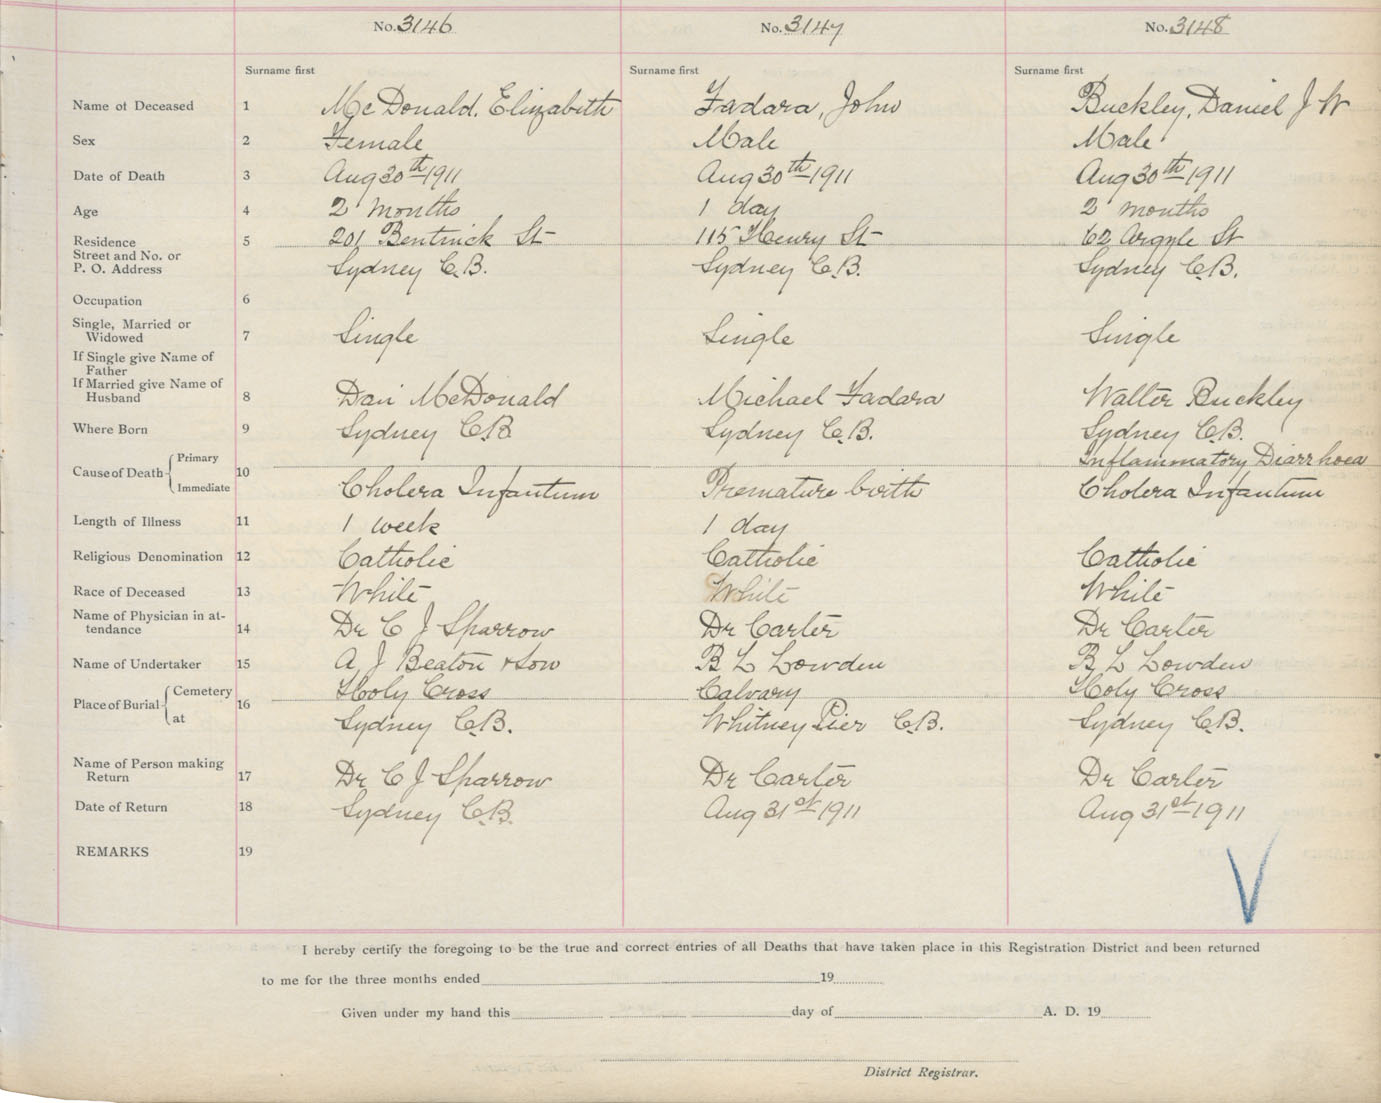 No. 3146 No. 3147 No. 3148
Surname first Surname first Surname first
Name of Deceased 1 McDonald, Elizabeth Fadara, John Buckley, Daniel J W
Sex 2 Female Male Male
Date of Death 3 Aug 30th 1911 Aug 30th 1911 Aug 30th 1911
Age 4 2 months 1 day 2 months
Residence 5 201 Bentinck St 115 Henry St 62 Argyle St
Street and No. or
P. O. Address Sydney C.B. Sydney C.B. Sydney C.B.
Occupation 6
Single, Married or
Widowed 7 Single Single Single
If Single give Name of
Father
If Married give Name of
Husband 8 Dan McDonald Michael Fadara Walter Buckley
Where Born 9 Sydney C.B. Sydney C.B. Sydney C.B.
Cause of Death Primary 10 Inflammatory Diarrhoea
Immediate Cholera Infantum Premature birth Cholera Infantum
Length of Illness 11 1 week 1 day
Religious Denomination 12 Catholic Catholic Catholic
Race of Deceased 13 White White White
Name of Physician in at-
tendance 14 Dr C J Sparrow Dr Carter Dr Carter
Name of Undertaker 15 A J Beaton & Son B L Lowden B L Lowden
Place of Burial Cemetery 16 Holy Cross Calvary Holy Cross
at Sydney C.B. Whitney Pier C.B. Sydney C.B.
Name of Person making
Return 17 Dr C J Sparrow Dr Carter Dr Carter
Date of Return 18 Sydney C.B. Aug 31st 1911 Aug 31st 1911
REMARKS 19
I hereby certify the foregoing to be the true and correct entries of all Deaths that have taken place in this Registration District and been returned
to me for the three months ended 19
Given under my hand this day of A. D. 19
District Registrar.